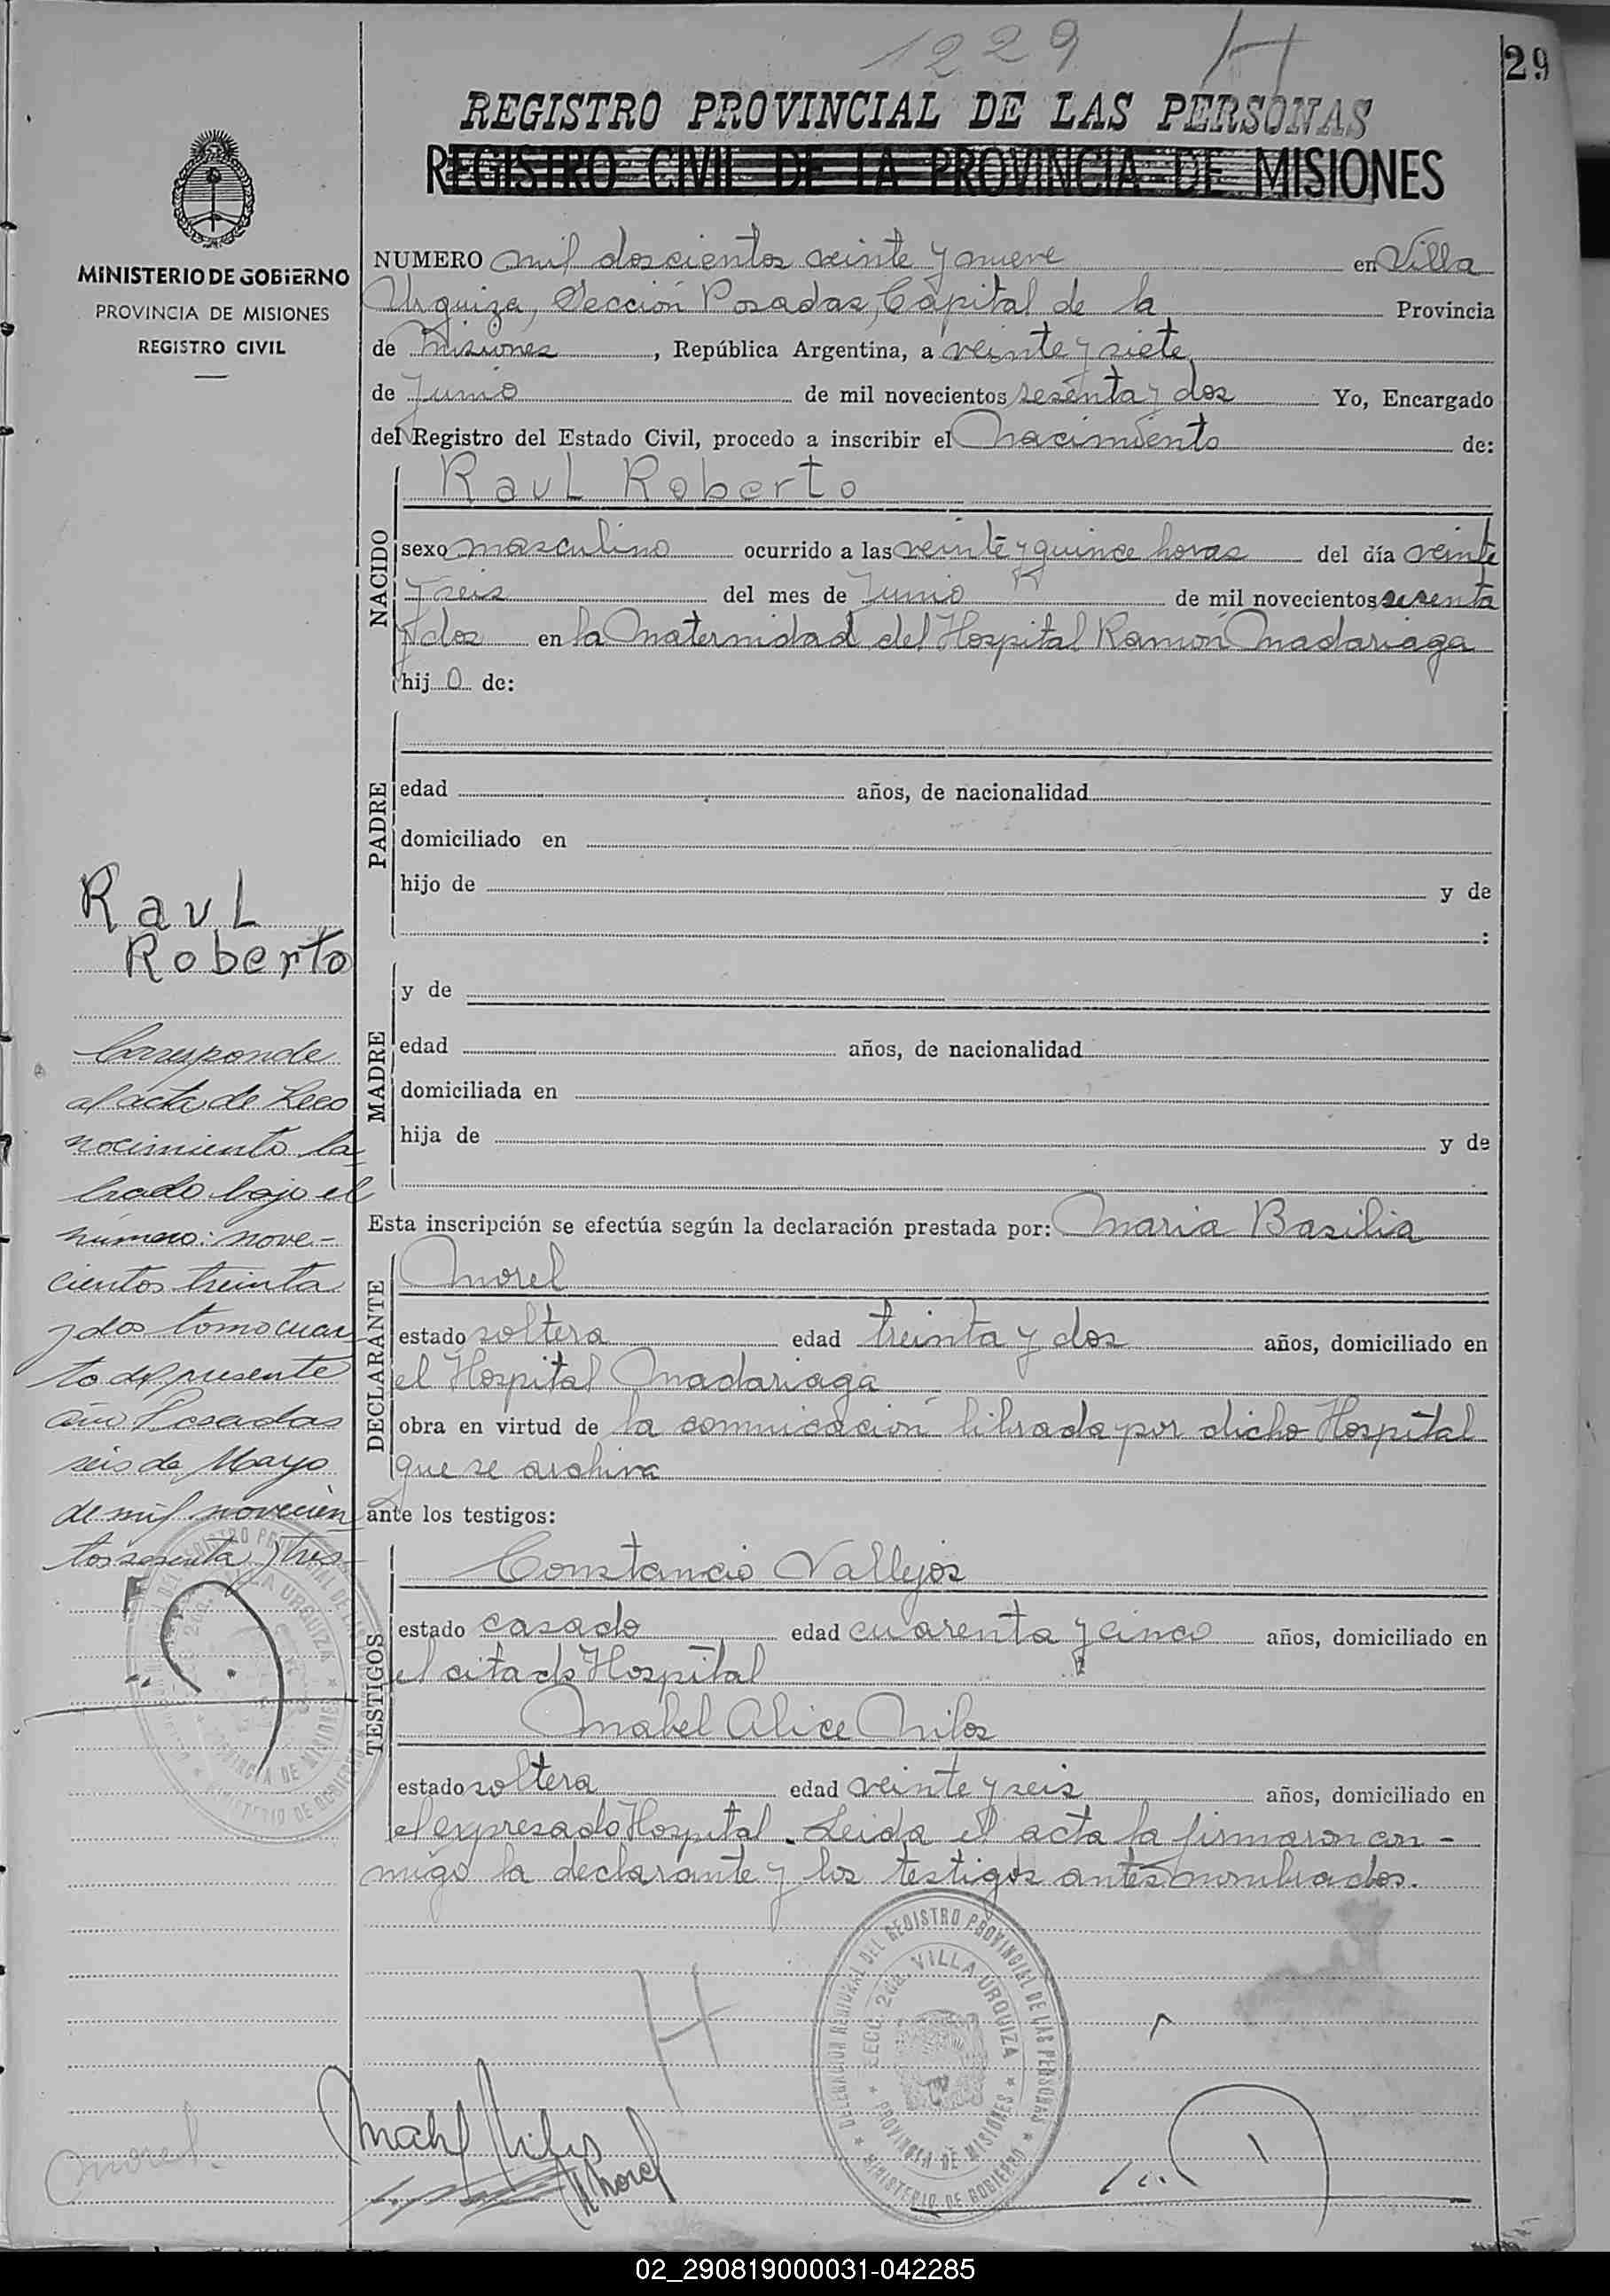 1229 H
29
REGISTRO PROVINCIAL DE LAS PERSONAS
REGISTRO CIVIL DE LA PROVINCIA DE MISIONES
MINISTERIO DE GOBIERNO
PROVINCIA DE MISIONES
REGISTRO CIVIL
NUMERO mil doscientos veinte y nueve en Villa
Urquiza, Sección Posadas, Capital de la Provincia
de Misiones, República Argentina, a veinte y siete
de Junio de mil novecientos sesenta y dos Yo, Encargado
del Registro del Estado Civil, procedo a inscribir el Nacimiento de:
NACIDO
Raul Roberto
sexo masculino ocurrido a las veinte y quince horas del día veinte
y seis del mes de Junio de mil novecientos sesenta
y dos en la Maternidad del Hospital Ramón Madariaga
hijo de:
PADRE
edad años, de nacionalidad
domiciliado en
hijo de y de
:
MADRE
y de
edad años, de nacionalidad
domiciliada en
hija de y de
Esta inscripción se efectúa según la declaración prestada por: Maria Basilia
DECLARANTE
Morel
estado soltera edad treinta y dos años, domiciliado en
el Hospital Madariaga
obra en virtud de la comunicación librada por dicho Hospital
que se archiva
ante los testigos:
TESTIGOS
Constancio Vallejos
estado casado edad cuarenta y cinco años, domiciliado en
el citado Hospital
Mabel Alice Milos
estado soltera edad veinte y seis años, domiciliado en
el expresado Hospital. Leida el acta la firmaron con-
migo la declarante y los testigos antes nombrados.
Raul
Roberto
Corresponde
al acta de Reco
nocimiento la
brado bajo el
número: nove-
cientos treinta
y dos tomo cuar
to del presente
año Posadas
seis de Mayo
de mil novecien
tos sesenta y tres
H
DELEGACION REGIONAL DEL REGISTRO PROVINCIAL DE LAS PERSONAS
SECC. 2da. VILLA URQUIZA
PROVINCIA DE MISIONES
MINISTERIO DE GOBIERNO
Morel
Mabel Milos
Morel
02_290819000031-042285